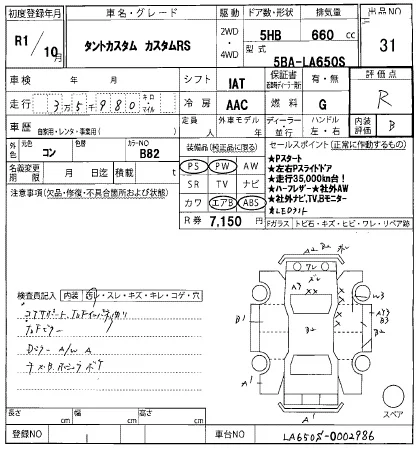 初度登録年月
車名・グレード
駆動
ドア数・形状
排気量
出品NO
R1/10月
タントカスタム カスタムRS
2WD・4WD
5HB
660 cc
31
型式
5BA-LA650S
車検 年 月
シフト
IAT
保証書
有・無
評価点
走行 3万5千980 キロ・マイル
冷房
AAC
燃料
G
R
車歴
自家用・レンタ・事業用( )
定員
人
外車モデル
年
ディーラー・並行
ハンドル
左・右
内装評価
B
外色
元色
コン
色替
カラーNO
B82
装備品(純正品に限る)
セールスポイント(正常に作動するもの)
名義変更期限
月 日迄
積載
t
PS PW AW
SR TV ナビ
カワ エアB ABS
R券 7,150 円
★Pスタート
★左右Pスライドドア
★走行35,000km台!
★ハーフレザー★社外AW
★社外ナビ,TV,Bモニター
★LEDライト
注意事項(欠品・修復・不具合箇所および状態)
Fガラス トビ石・キズ・ヒビ・ワレ・リペア跡
検査員記入
内装 汚レ・スレ・キズ・キレ・コゲ・穴
A/W A
A2 B2
ワレ
A3
X
X
X
W3
AY3
B3
B1
B2
A1
A1
A1
スペア
長さ cm
幅 cm
高さ cm
登録NO
車台NO
LA650S-0002986